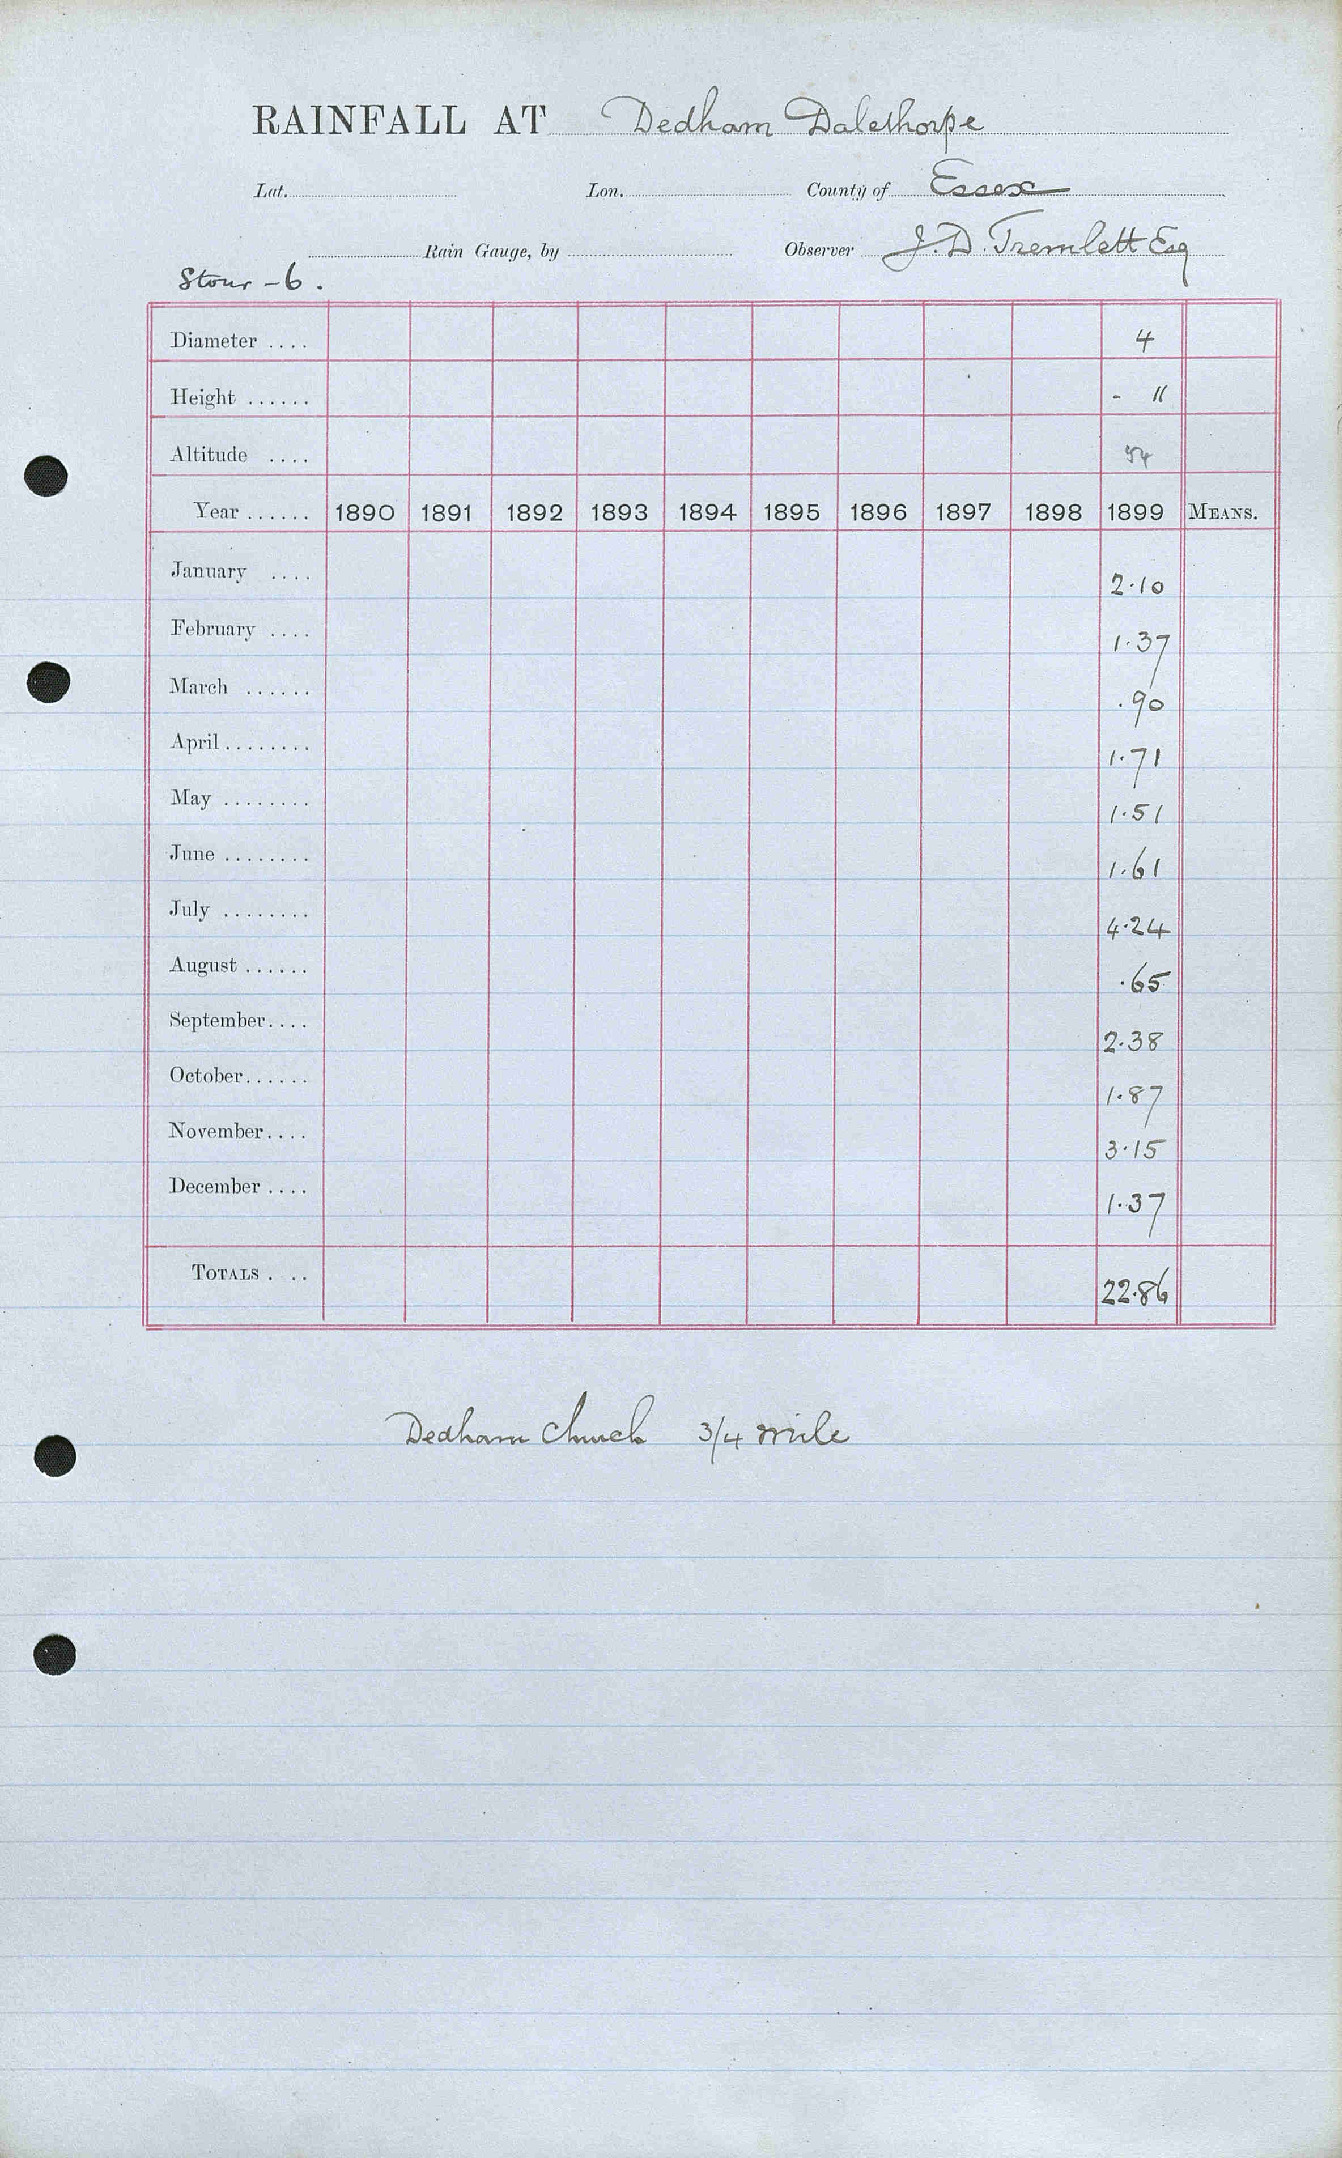 RAINFALL AT Dedham Dalethorpe
Lat. Lon. County of Essex
Rain Gauge, by Observer J. D. Tremlett Esq
Stour - 6.
Diameter .... 4
Height ...... - 11
Altitude ....
Year ...... 1890 1891 1892 1893 1894 1895 1896 1897 1898 1899 MEANS.
January .... 2.10
February .... 1.37
March ...... .90
April ........ 1.71
May ........ 1.51
June ........ 1.61
July ........ 4.24
August ...... .65
September.... 2.38
October...... 1.87
November.... 3.15
December .... 1.37
TOTALS . .. 22.86
Dedham Church 3/4 mile